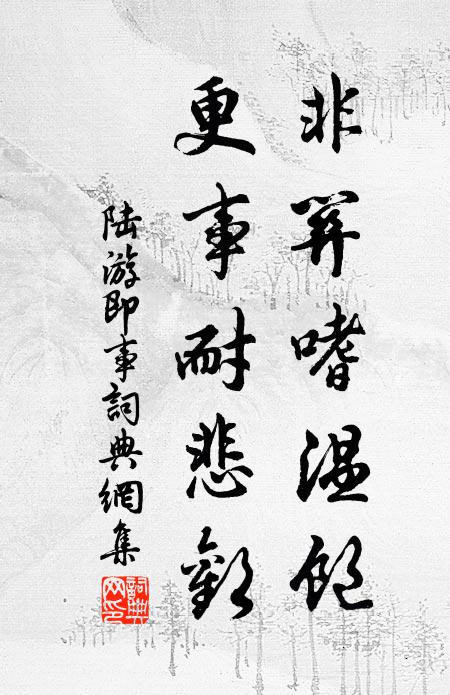 非關嗜温飽
更事耐悲歡
陸游即事詞典網集